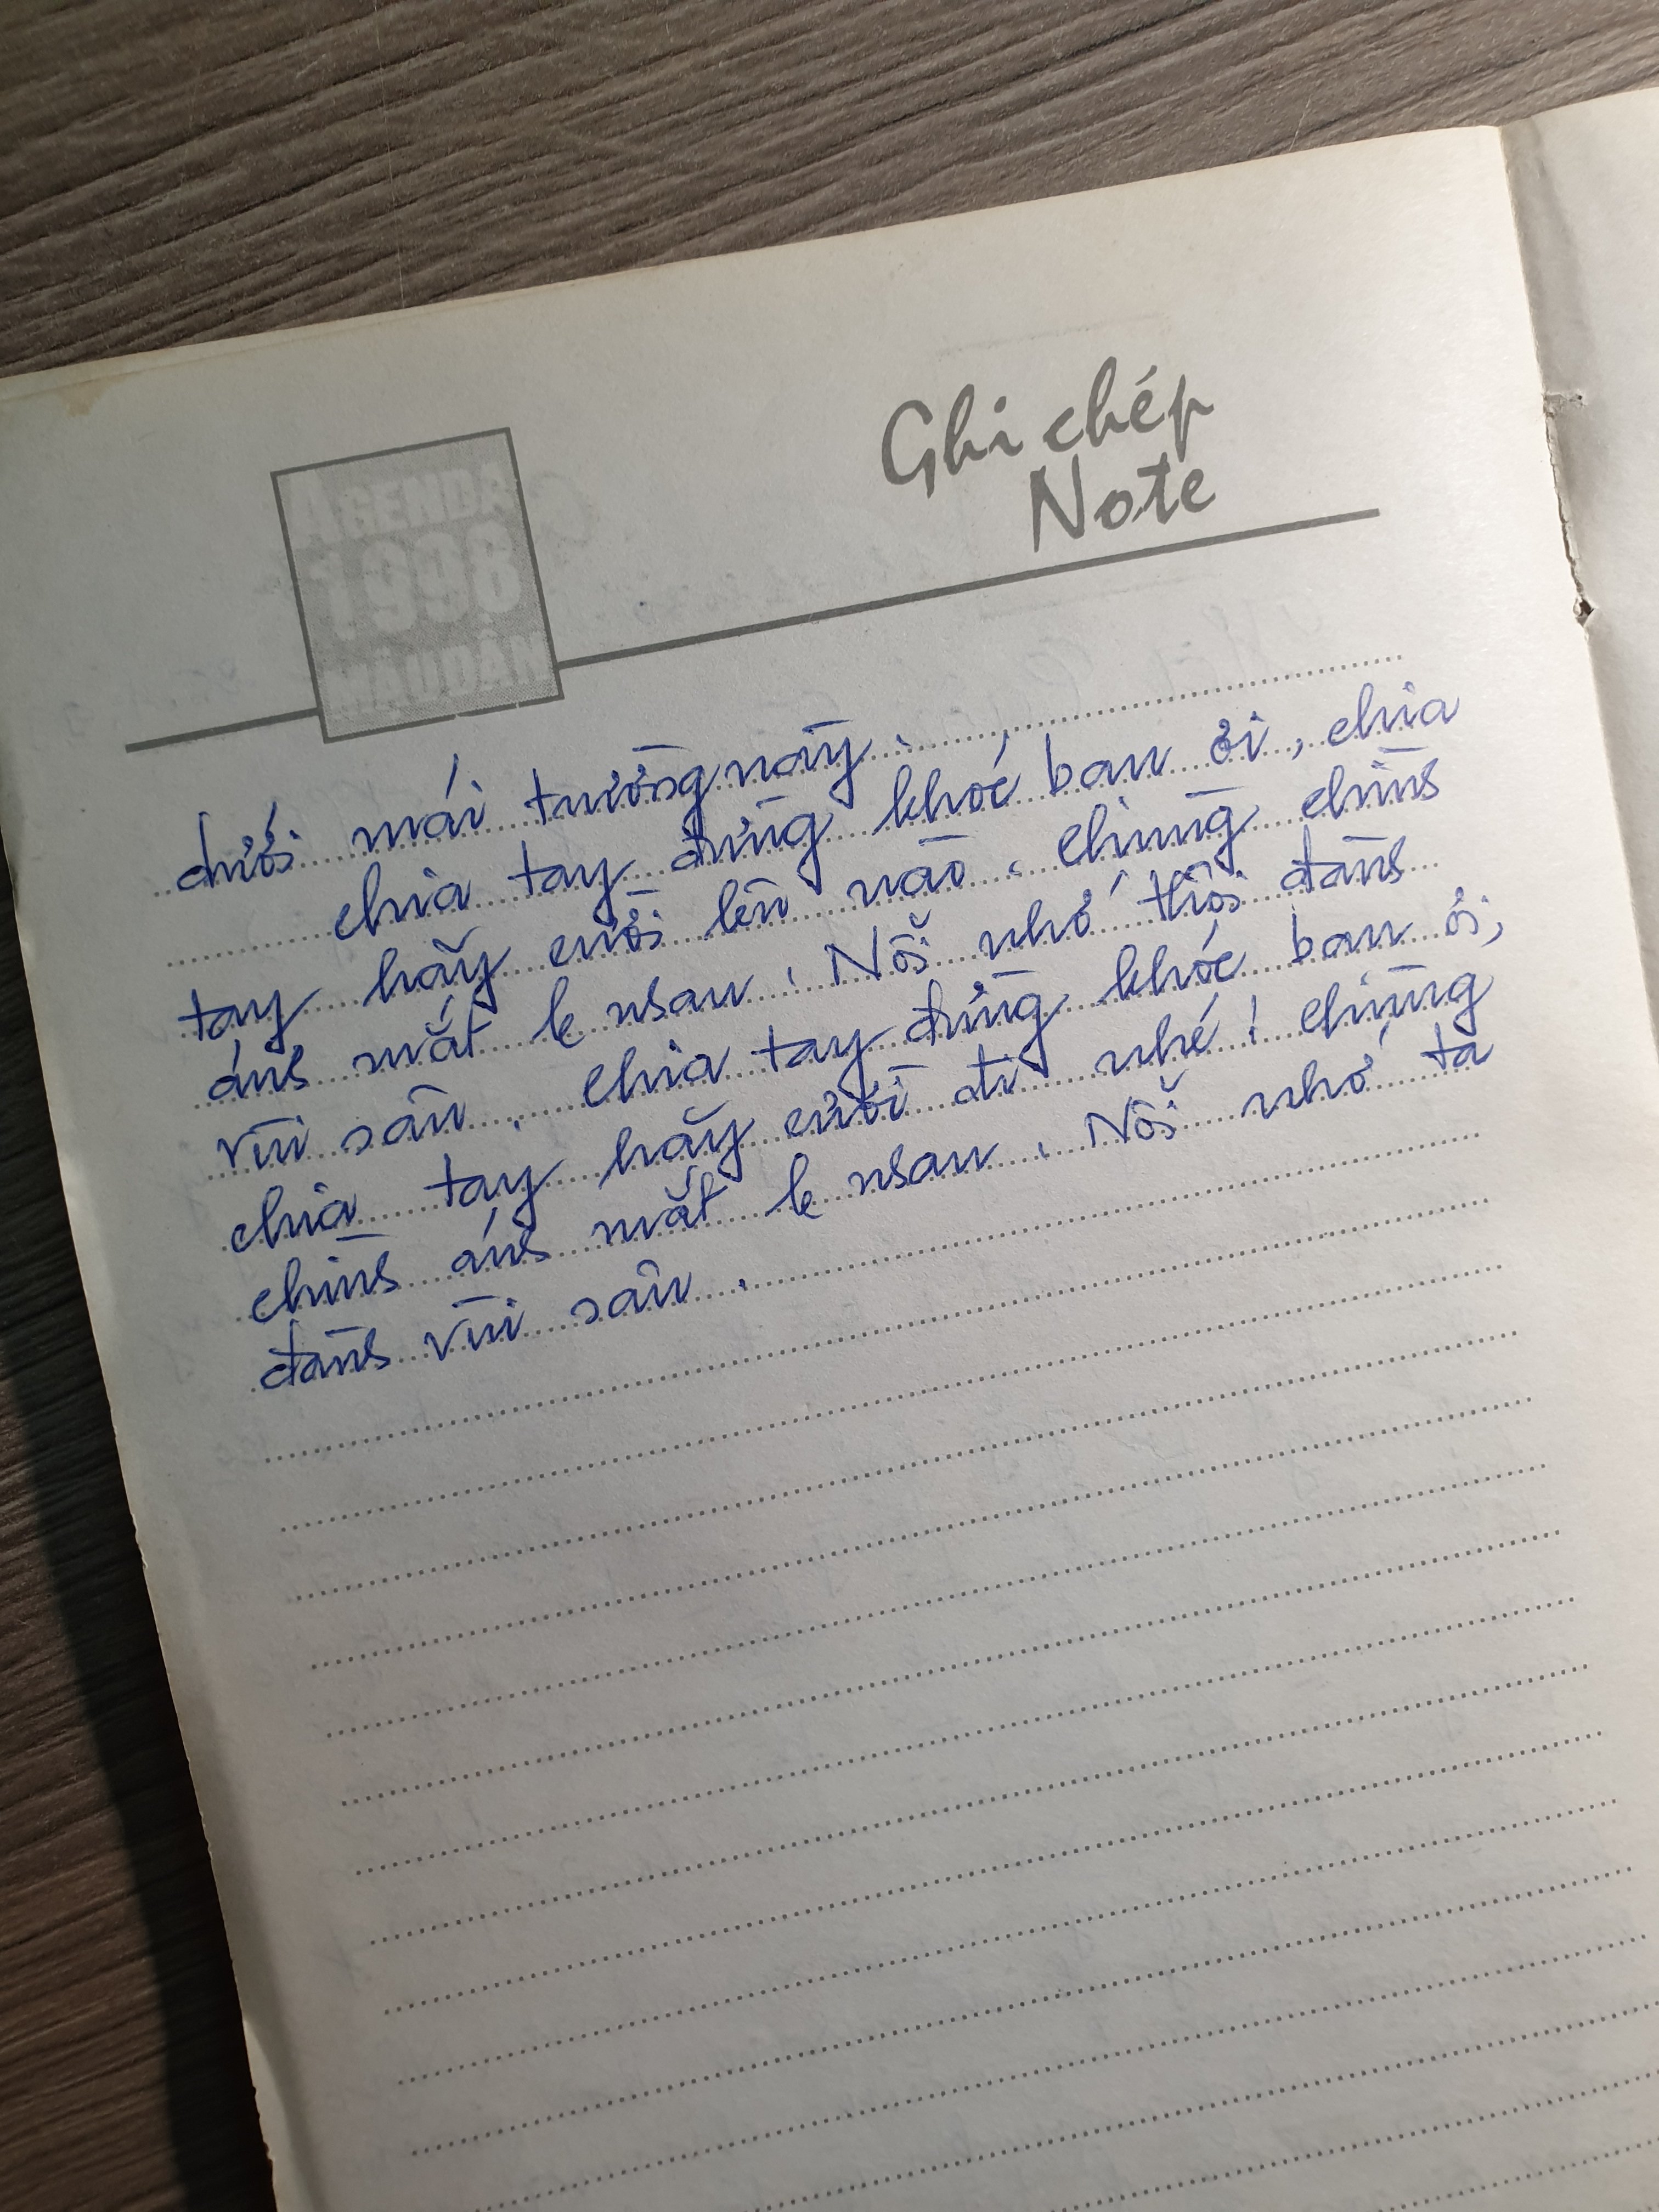 AGENDA
1998
MẬU DẦN
Ghi chép
Note
dưới mái trường này.
chia tay đừng khóc bạn ơi, chia
tay hãy cười lên nào. chúng chình
ánh mắt lẻ nhau. Nỗi nhớ thôi đành
vùi sâu. chia tay đừng khóc bạn ơi,
chia tay hãy cười đi nhé! chúng ta
chình ánh mắt lẻ nhau. Nỗi nhớ
đành vùi sâu.